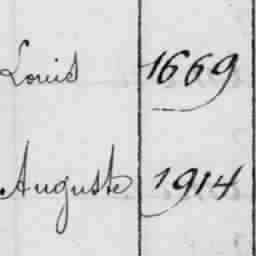 Louis 1669
Auguste 1914